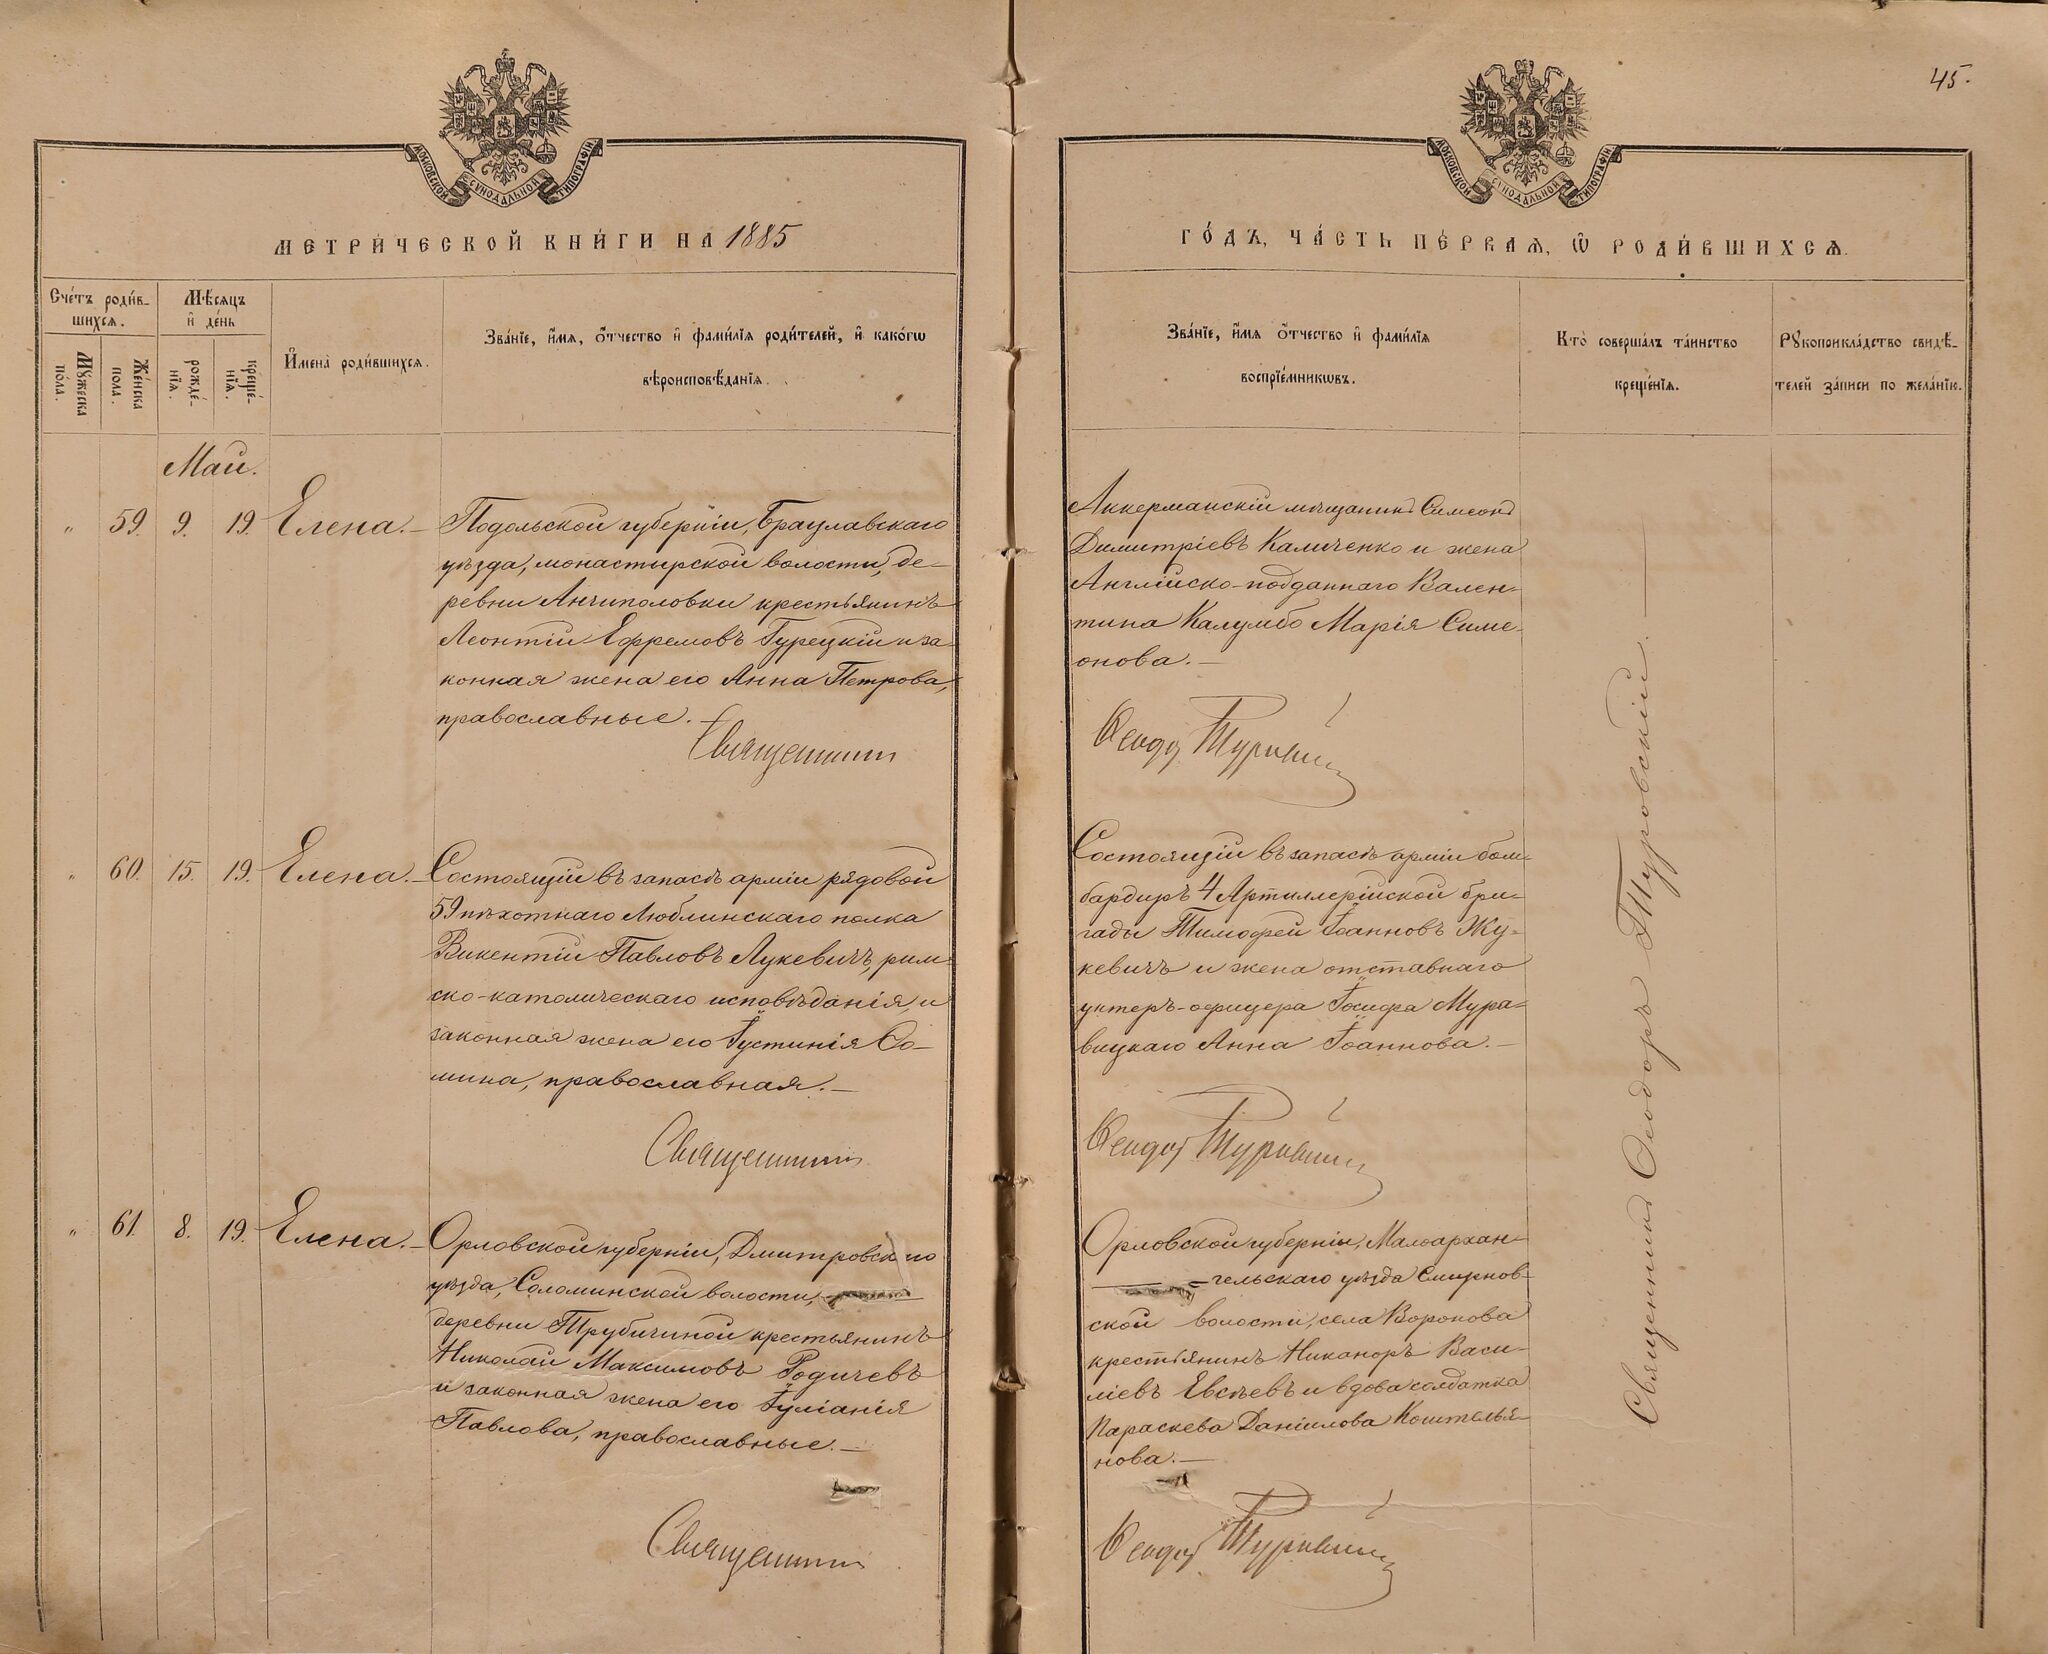 45.
МОСКОВСКОЙ СѴНОДАЛЬНОЙ ТИПОГРАФІИ
МОСКОВСКОЙ СѴНОДАЛЬНОЙ ТИПОГРАФІИ
МЕТРИ́ЧЕСКОЙ КНИ́ГИ НА 1885
ГО́ДЪ, ЧА́СТЬ ПЕ́РВАЯ, Ѿ РОДИ́ВШИХСѦ.
Сче́тъ роди́в-
шихсѧ.
Мꙋ́жеска по́ла.
Же́нска по́ла.
Мѣ́сѧцъ
и҆ де́нь
рожде́-
нїѧ.
креще́-
нїѧ.
И҆мена̀ роди́вшихсѧ.
Зва́нїе, и҆́мѧ, ѻ҆́тчество и҆ фами́лїѧ роди́телей, и҆ како́гѡ
вѣроисповѣ́данїѧ.
Зва́нїе, и҆́мѧ ѻ҆́тчество и҆ фами́лїѧ
воспрїе́мникѡвъ.
Кто̀ соверша́лъ та́инство
креще́нїѧ.
Рꙋкоприкла́дство свидѣ́-
телей за́писи по жела́нїю.
Май.
" 59. 9. 19. Елена. —
Подольской губерніи, Брацлавскаго
уѣзда, монастырской волости, де-
ревни Анчиполовки крестьянинъ
Леонтій Ефремовъ Турецкій и за-
конная жена его Анна Петрова,
православные. —
Священникъ
Аккерманскій мѣщанинъ Симеонъ
Димитріевъ Каличенко и жена
Англійско-подданнаго Вален-
тина Калумбо Марія Симе-
онова. —
Ѳеодоръ Туровскій
" 60. 15. 19. Елена. —
Состоящій въ запасѣ арміи рядовой
59 пѣхотнаго Люблинскаго полка
Викентій Павловъ Лукевичъ, рим-
ско-католическаго исповѣданія, и
законная жена его Іустинія Ѳо-
мина, православная. —
Священникъ
Состоящій въ запасѣ арміи бом-
бардиръ 4 Артиллерійской бри-
гады Тимофей Іоанновъ Жу-
кевичъ и жена отставнаго
унтеръ-офицера Іосифа Мура-
вицкаго Анна Іоаннова. —
Ѳеодоръ Туровскій
" 61. 8. 19. Елена. —
Орловской губерніи, Дмитровскаго
уѣзда, Соломинской волости, —
деревни Трубичиной крестьянинъ
Николай Максимовъ Родичевъ
и законная жена его Іуліанія
Павлова, православные. —
Священникъ
Орловской губерніи, Малоархан-
— гельскаго уѣзда Смирнов-
ской волости, села Воронова
крестьянинъ Никаноръ Васи-
ліевъ Евсѣевъ и вдова солдатка
Параскева Даніилова Коштелья-
нова. —
Ѳеодоръ Туровскій
Священникъ Ѳеодоръ Туровскій. —